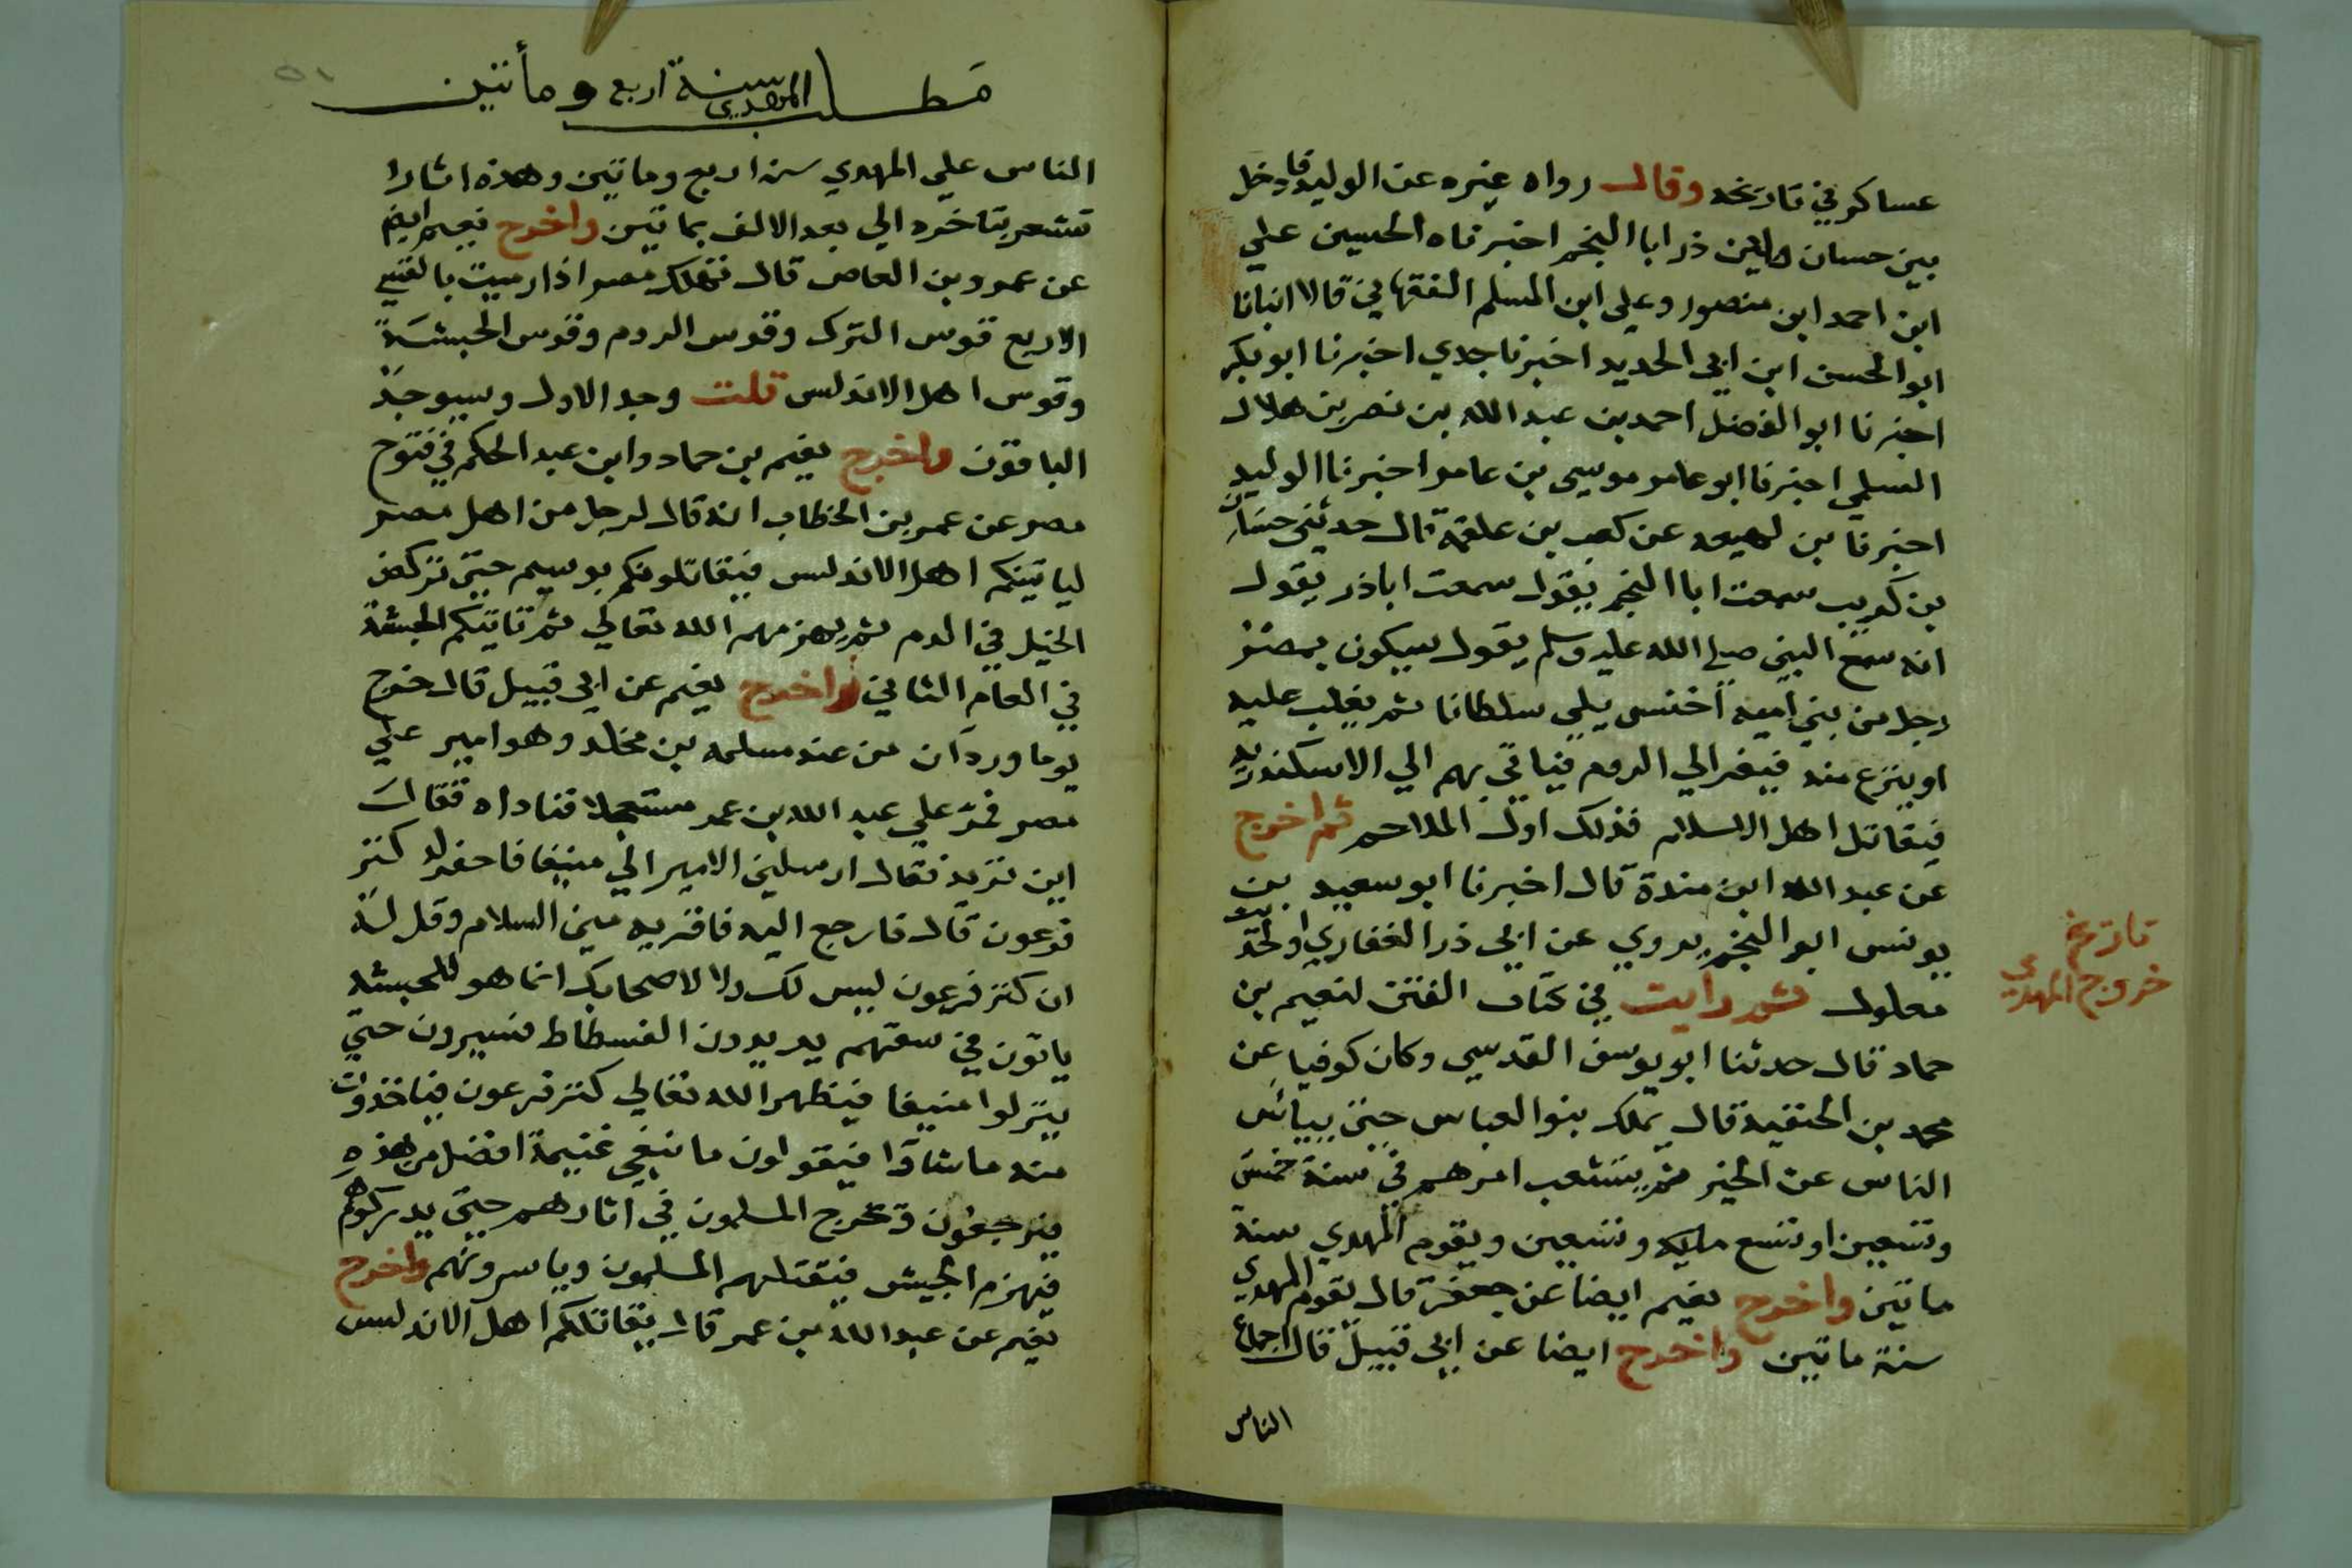 عساكر في تاريخه وقال رواه غيره عن الوليد فادخل
بين حسان وابن ذر ابا النجم اخبرناه الحسين علي
ابن احمد ابن منصور وعلي ابن المسلم الفقهاني قالا انبانا
ابو الحسن ابن ابي الحديد اخبرنا جدي اخبرنا ابو بكر
اخبرنا ابو الفضل احمد بن عبد الله بن نصر بن هلال
السلمي اخبرنا ابو عامر موسي بن عامر اخبرنا الوليد
اخبرنا بن لهيعه عن كعب بن علقمة قال حدثني حسان
بن كريب سمعت ابا النجم يقول سمعت اباذر يقول
انه سمع النبي صلي الله عليه وسلم يقول سيكون بمصر
رجل من بني اميه اخنس يلي سلطانا ثم يغلب عليه
او ينزع منه فيفر الي الروم فياتي بهم الي الاسكندريه
فيقاتل اهل الاسلام فذلك اول الملاحم ثم اخرج
عن عبد الله ابن مندة قال اخبرنا ابو سعيد بن
يونس ابو النجم يروي عن ابي ذر الغفاري
معلول ثم رايت في كتاب الفتن لنعيم بن
تاريخ
خروج المهدي
حماد قال حدثنا ابو يوسف القدسي وكان كوفيا عن
محمد بن الحنفيه قال يملك بنو العباس حتي يياس
الناس عن الخير ثم يتشعب امرهم في سنة خمس
وتسعين او تسع مايه وتسعين ويقوم المهدي سنة
ماتين واخرج نعيم ايضا عن جعفر قال يقوم المهدي
سنة ماتين واخرج ايضا عن ابي قبيل قال اجماع
الناس
٥١
مطلب المهدي سنة اربع ومأتين
الناس علي المهدي سنة اربع وماتين وهذه اثارا
تشعر بتاخره الي بعد الالف بماتين واخرج نعيم ايضا
عن عمرو بن العاص قال تهلك مصر اذا رميت بالقسي
الاربع قوس الترك وقوس الروم وقوس الحبشة
وقوس اهل الاندلس قلت وجد الاول وسيوجد
الباقون واخرج نعيم بن حماد وابن عبد الحكم في فتوح
مصر عن عمر بن الخطاب انه قال لرجل من اهل مصر
لياتينكم اهل الاندلس فيقاتلونكم بوسيم حتي تركض
الخيل في الدم ثم يهزمهم الله تعالي ثم تاتيكم الحبشة
في العام الثاني واخرج نعيم عن ابي قبيل قال خرج
يوما وردان من عند مسلمه بن مخلد وهو امير علي
مصر فمر علي عبد الله بن عمر مستعجلا فناداه فقال
اين تريد فقال ارسلني الامير الي منيفا فاحفر له كنز
فرعون قال فارجع اليه فاقريه مني السلام وقل له
ان كنز فرعون ليس لك ولا لاصحابك انما هو للحبشه
ياتون في سفنهم يريدون الفسطاط فيسيرون حتي
ينزلوا منيفا فيظهر الله تعالي كنز فرعون فياخذون
منه ماشاؤا فيقولون ما نبغي غنيمة افضل من هذه
فيرجعون وتخرج المسلمون في اثارهم حتي يدركوهم
فيهزم الجيش فيقتلهم المسلمون وياسرونهم واخرج
نعيم عن عبد الله بن عمر قال يقاتلكم اهل الاندلس